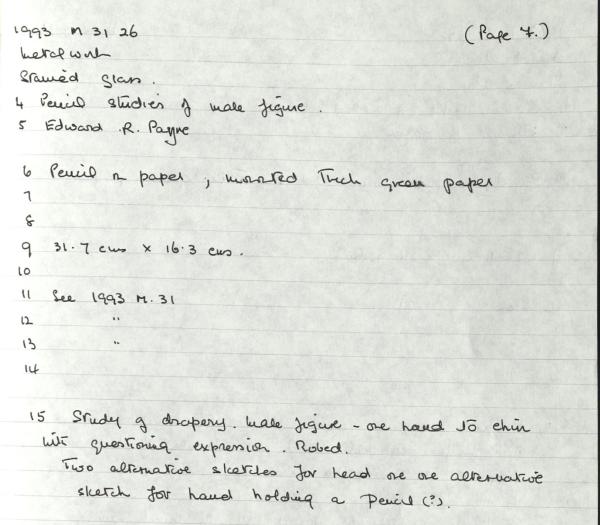 1993 M 31 26 (Page 7.)
Metalwork
Stained Glass.
4 Pencil studies of male figure.
5 Edward .R. Payne
6 Pencil on paper, mounted Thick green paper
7
8
9 31.7 cms x 16.3 cms.
10
11 See 1993 M.31
12 "
13 "
14
15 Study of drapery. Male figure - one hand to chin
with questioning expression. Robed.
Two alternative sketches for head one one alternative
sketch for hand holding a pencil (?).